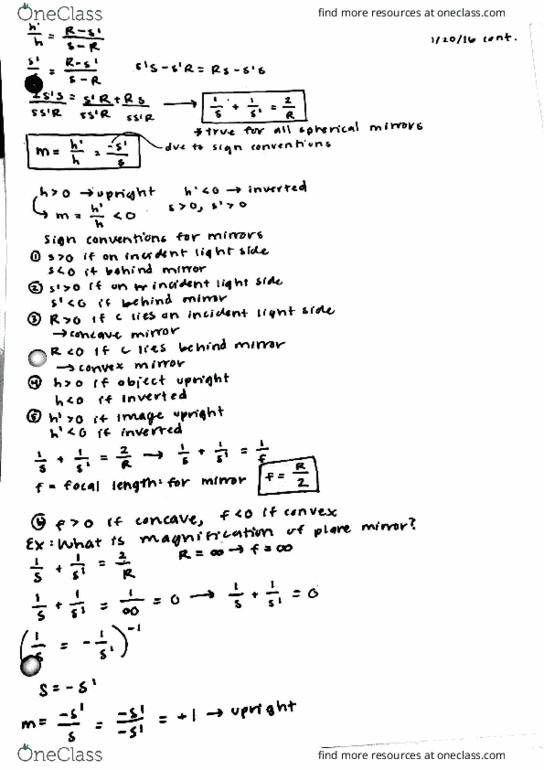 OneClass
find more resources at oneclass.com
h'/h = (R-s')/(s-R)
1/20/16 cont.
s'/s = (R-s')/(s-R)   s's - s'R = Rs - s's
2s's/ss'R = s'R/ss'R + Rs/ss'R → 1/s + 1/s' = 2/R
→ true for all spherical mirrors
m = h'/h = -s'/s
due to sign conventions
h>0 → upright   h'<0 → inverted
→ m = h'/h < 0   s>0, s'>0
Sign conventions for mirrors
① s>0 if on incident light side
s<0 if behind mirror
② s'>0 if on incident light side
s'<0 if behind mirror
③ R>0 if C lies on incident light side
→ concave mirror
R<0 if C lies behind mirror
→ convex mirror
④ h>0 if object upright
h<0 if inverted
⑤ h'>0 if image upright
h'<0 if inverted
1/s + 1/s' = 2/R → 1/s + 1/s' = 1/f
f = focal length: for mirror   f = R/2
⑥ f>0 if concave, f<0 if convex
Ex: What is magnification of plane mirror?
1/s + 1/s' = 2/R   R = ∞ → f = ∞
1/s + 1/s' = 1/∞ = 0 → 1/s + 1/s' = 0
(1/s = -1/s')⁻¹
s = -s'
m = -s'/s = -s'/-s' = +1 → upright
OneClass
find more resources at oneclass.com